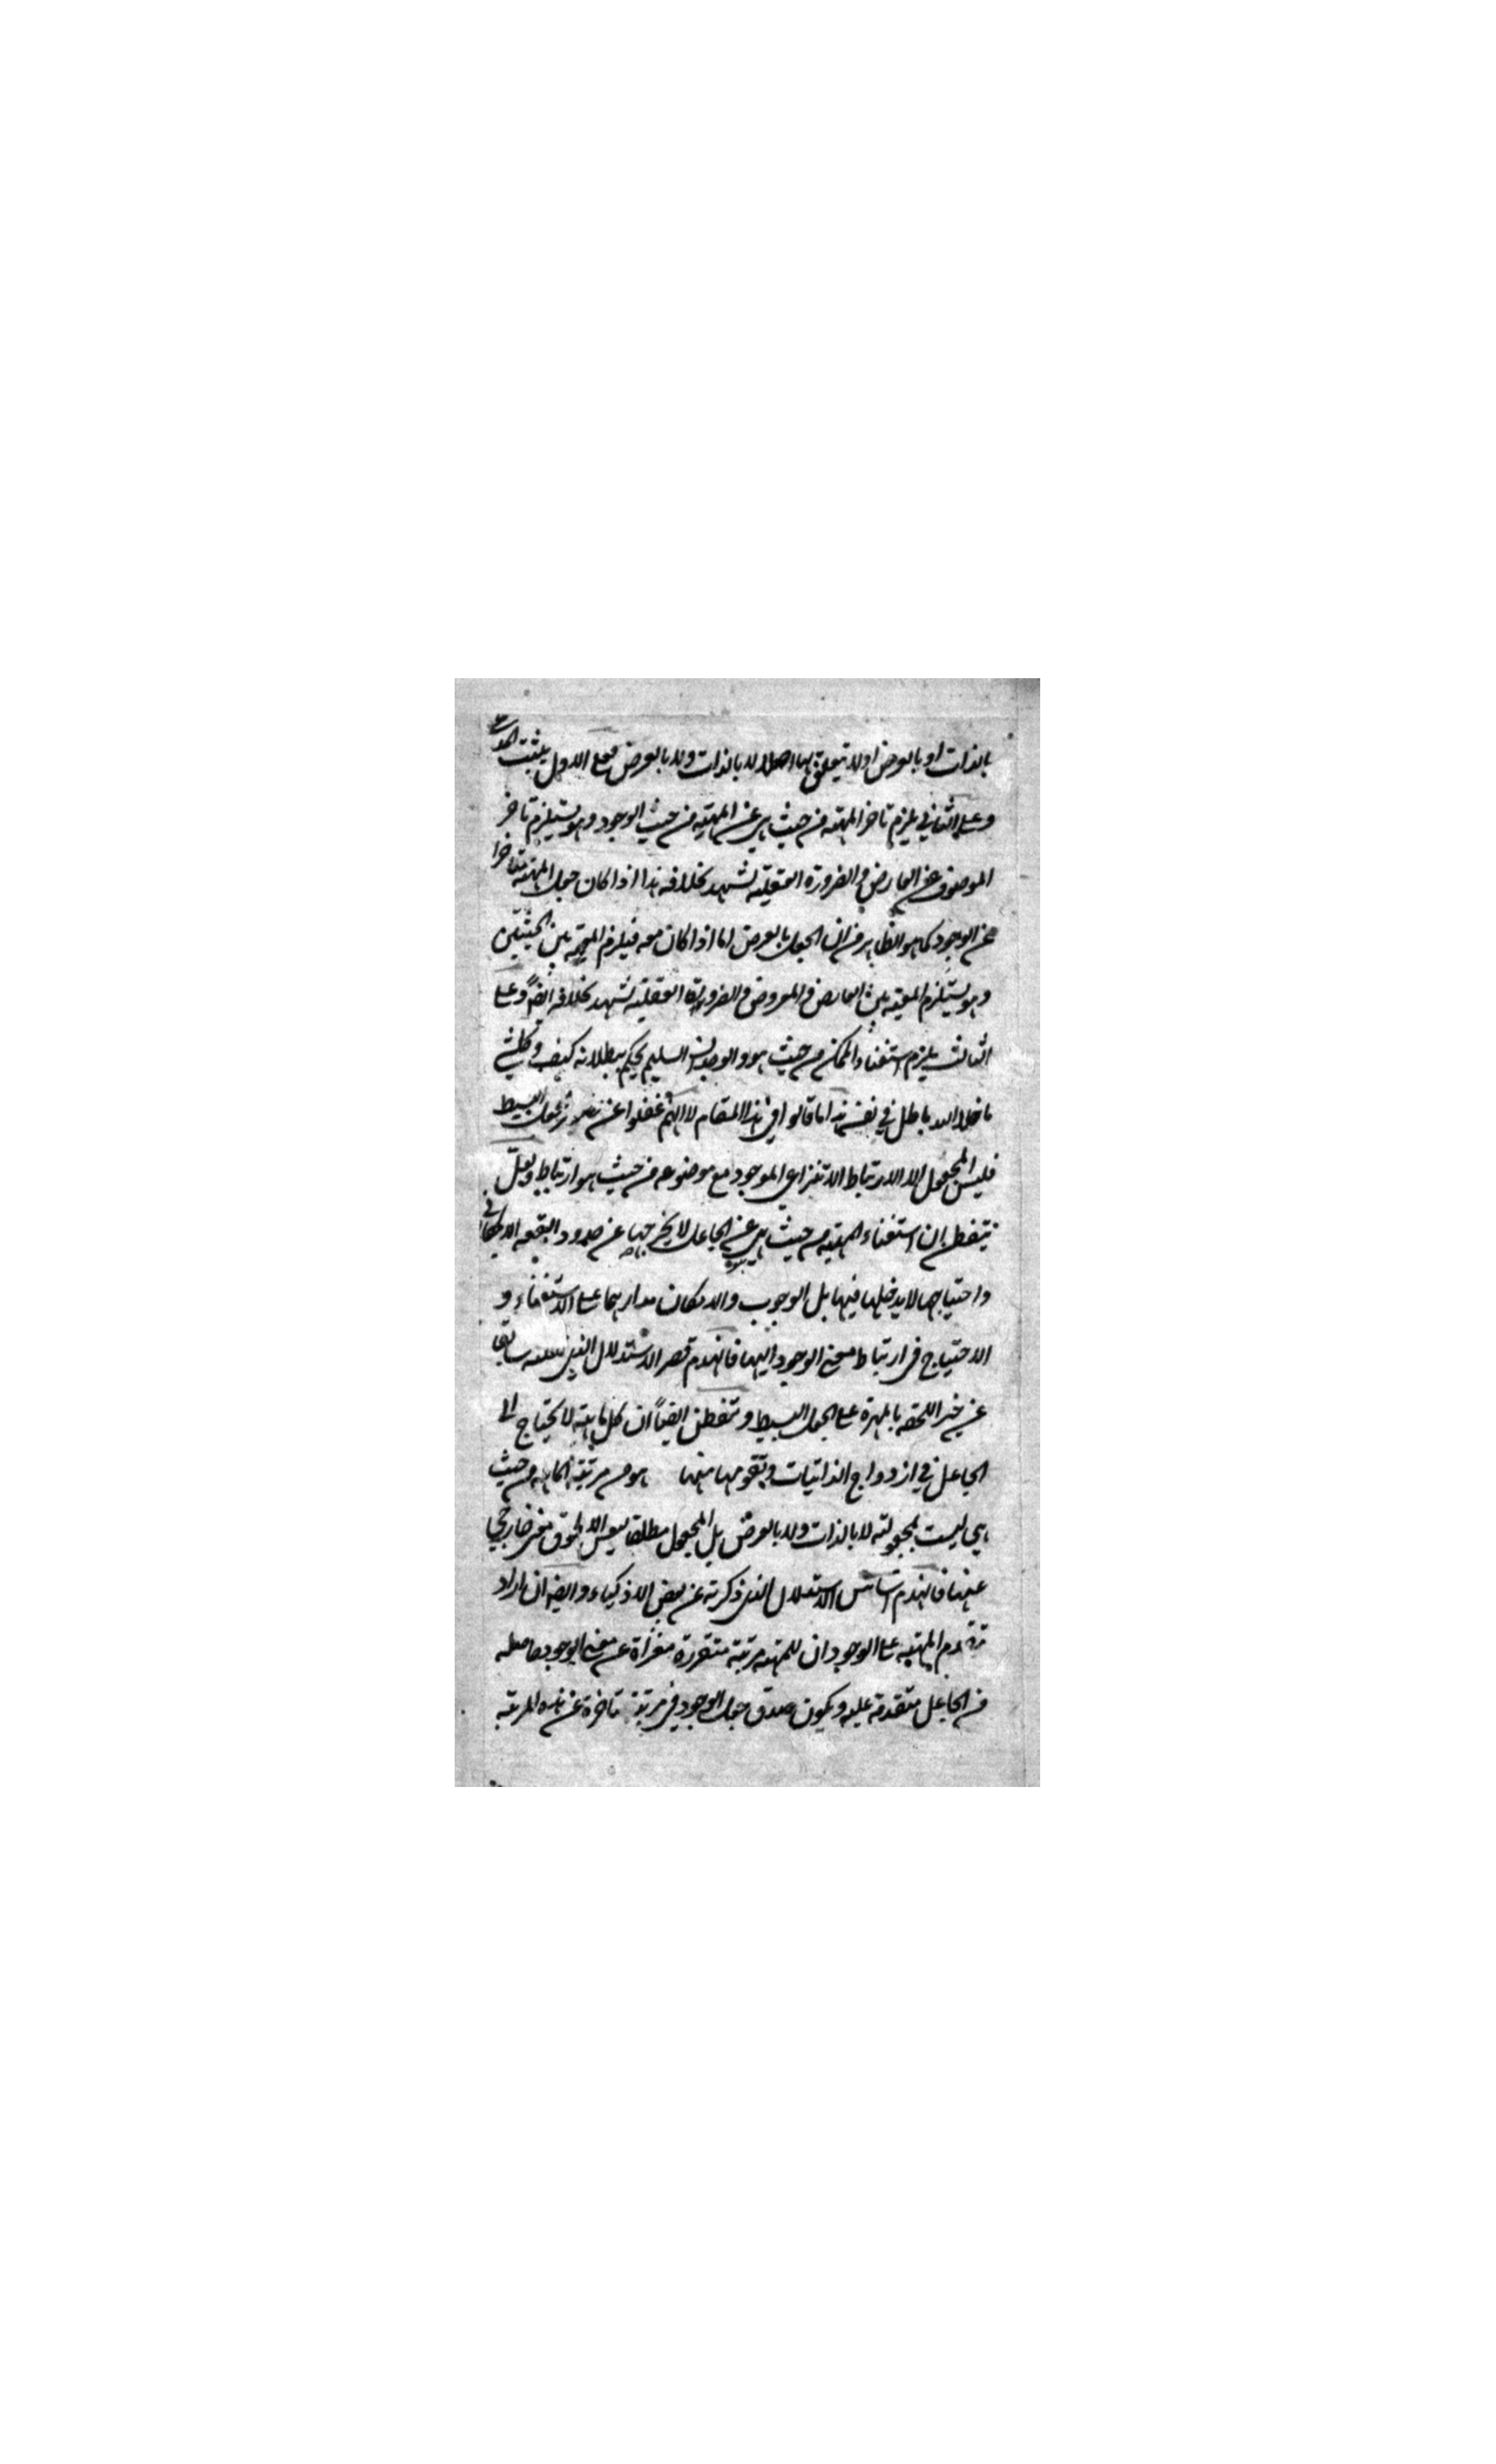 بالذات او بالعرض او لا يتعلق بها اصلا لا بالذات ولا بالعرض فعلى الاول يثبت المدعى
وعلى الثاني يلزم تاخر المهية من حيث هي عن المهية من حيث الوجود وهو يستلزم تاخر
الموصوف عن العارض والضرورة العقلية تشهد بخلافه هذا اذا كان جعل المهية متاخرا
عن الوجود كما هو الظاهر من ان الجعل بالعرض اما اذا كان معه فيلزم المعية بين الحيثيتين
وهو يستلزم المعية بين العارض والمعروض والضرورة العقلية تشهد بخلافه ايضا وعلى
الثالث يلزم استغناء الممكن من حيث هو والوجدان السليم يحكم ببطلانه كيف وكل شيء
ما خلا الله باطل في نفسه هذا ما قالوا في هذا المقام الا انهم غفلوا عن الجعل البسيط
فليس المجعول الا الارتباط الانتزاعي الموجود مع موضوعه من حيث هو ارتباط ولعلك
تتفطن ان استغناء المهية من حيث هي عن الجاعل لا يخرجها عن حدود البقعة الامكاني
واحتياجها لا يدخلها فيها بل الوجوب والامكان مدارهما على الاستغناء و
الاحتياج في ارتباط الوجود اليها فانهدم قصر الاستدلال الذي سابقا
عن خير بالمهرة على الجعل البسيط وتتفطن ايضا ان كل ماهية لا تحتاج الى
الجاعل في ازدواج الذاتيات وتقومها منها هو من مرتبة من حيث
هي ليست بمجعولة لا بالذات ولا بالعرض بل المجعول مطلقا ليس الا لحوق معنى خارجي
عنها فانهدم اساس الاستدلال الذي ذكرته عن بعض الاذكياء وايضا ان اراد
تقدم المهية على الوجود ان للمهية مرتبة متقررة معراة عن معنى الوجود حاصلة
من الجاعل متقدمة عليه ويكون صدق حمل الوجود في مرتبة متاخرة عن هذه المرتبة